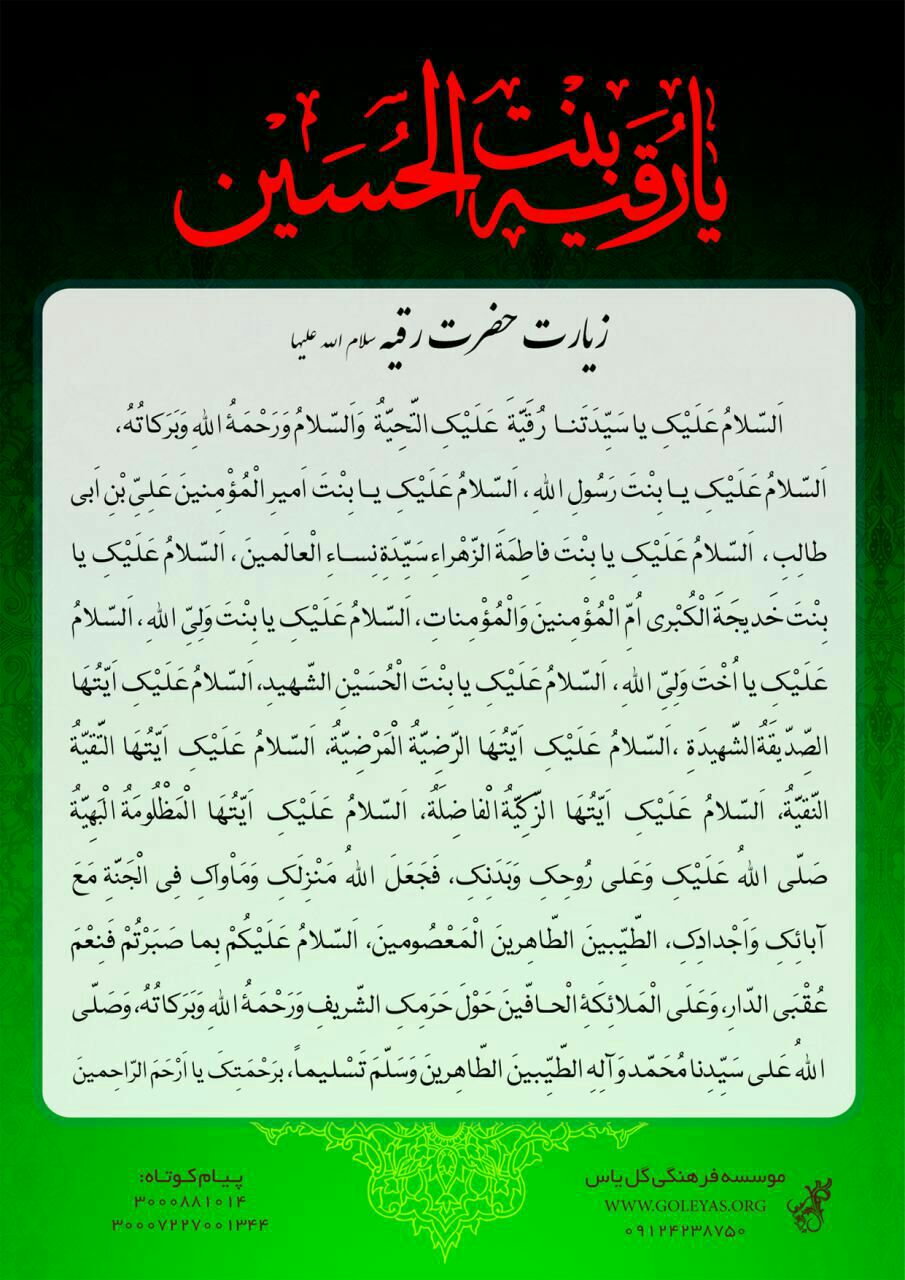 یا رقیه بنت الحسین
زیارت حضرت رقیه سلام الله علیها
اَلسَّلامُ عَلَیْکِ یا سَیِّدَتَنا رُقَیَّةَ عَلَیْکِ التَّحِیَّةُ وَاَلسَّلامُ وَرَحْمَةُ اللهِ وَبَرَکاتُهُ،
اَلسَّلامُ عَلَیْکِ یا بِنْتَ رَسُولِ اللهِ، اَلسَّلامُ عَلَیْکِ یا بِنْتَ اَمیرِ الْمُؤْمِنینَ عَلِیِّ بْنِ اَبی
طالِبِ، اَلسَّلامُ عَلَیْکِ یا بِنْتَ فاطِمَةَ الزَّهْراءِ سَیِّدَةِ نِساءِ الْعالَمینَ، اَلسَّلامُ عَلَیْکِ یا
بِنْتَ خَدیجَةَ الْکُبْری اُمِّ الْمُؤْمِنینَ وَالْمُؤْمِناتِ، اَلسَّلامُ عَلَیْکِ یا بِنْتَ وَلِیِّ اللهِ، اَلسَّلامُ
عَلَیْکِ یا اُخْتَ وَلِیِّ اللهِ، اَلسَّلامُ عَلَیْکِ یا بِنْتَ الْحُسَیْنِ الشَّهیدِ، اَلسَّلامُ عَلَیْکِ اَیَّتُهَا
الصِّدّیقَةُ الشَّهیدَةِ، اَلسَّلامُ عَلَیْکِ اَیَّتُهَا الرَّضِیَّةُ الْمَرْضِیَّةُ، اَلسَّلامُ عَلَیْکِ اَیَّتُهَا التَّقیَّةُ
النَّقیَّةُ، اَلسَّلامُ عَلَیْکِ اَیَّتُهَا الزَّکِیَّةُ الْفاضِلَةُ، اَلسَّلامُ عَلَیْکِ اَیَّتُهَا الْمَظْلُومَةُ الْبَهِیَّةُ
صَلَّی اللهُ عَلَیْکِ وَعَلی رُوحِکِ وَبَدَنِکِ، فَجَعَلَ اللهُ مَنْزِلَکِ وَمَأْواکِ فِی الْجَنَّةِ مَعَ
آبائِکِ وَاَجْدادِکِ، الطَّیِّبینَ الطّاهِرینَ الْمَعْصُومینَ، اَلسَّلامُ عَلَیْکُمْ بِما صَبَرْتُمْ فَنِعْمَ
عُقْبَی الدّارِ، وَعَلَی الْمَلائِکَةِ الْحافّینَ حَوْلَ حَرَمِکِ الشَّریفِ وَرَحْمَةُ اللهِ وَبَرَکاتُهُ، وَصَلَّی
اللهُ عَلی سَیِّدِنا مُحَمَّد وَآلِهِ الطَّیِّبینَ الطّاهِرینَ وَسَلَّمَ تَسْلیماً، بِرَحْمَتِکَ یا اَرْحَمَ الرّاحِمینَ
موسسه فرهنگی گل یاس
WWW.GOLEYAS.ORG
۰۹۱۲۴۲۳۸۷۵۰
پیام کوتاه:
۳۰۰۰۸۸۱۰۱۴
۳۰۰۰۷۲۲۷۰۰۱۳۴۴